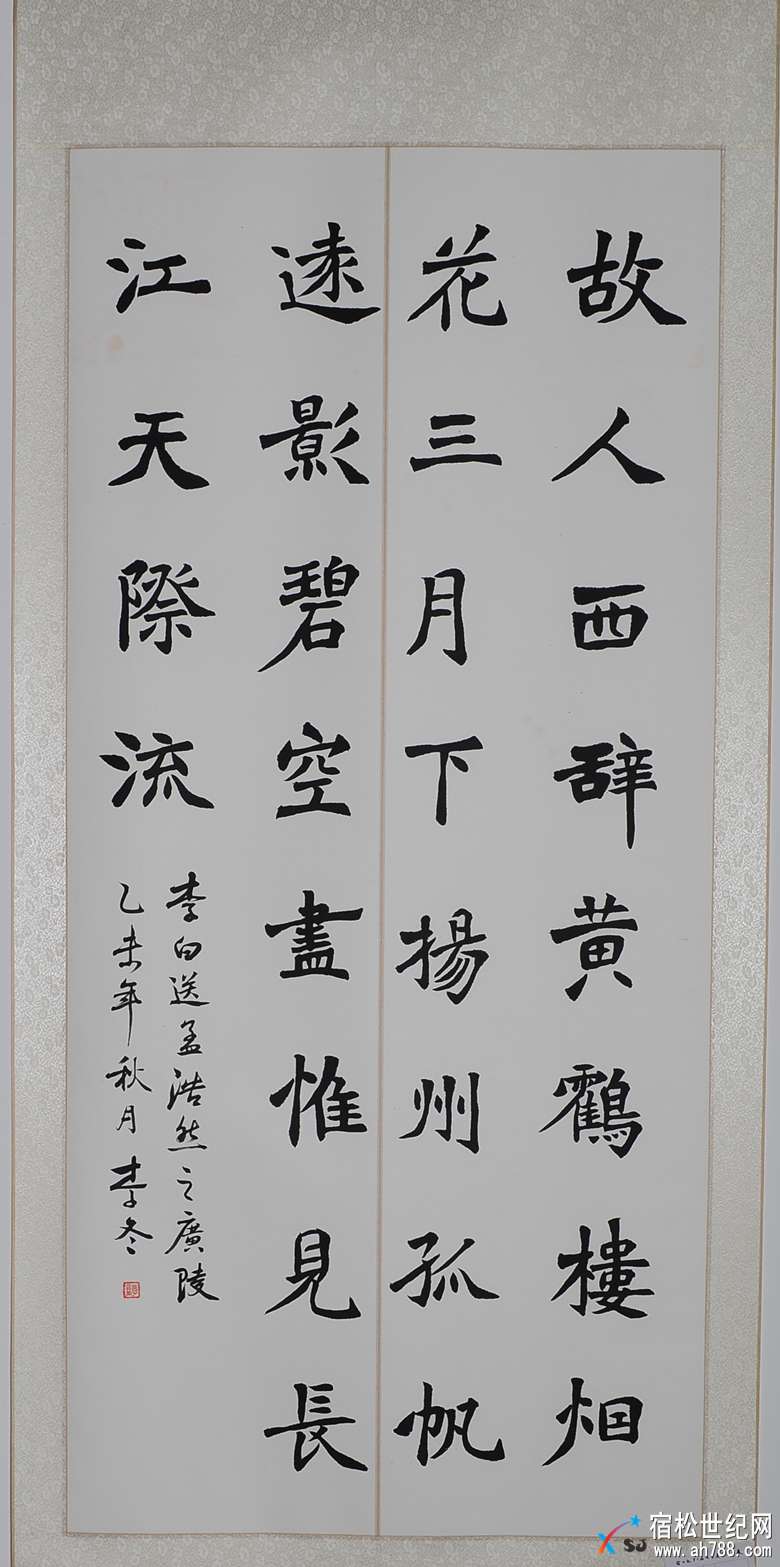 故人西辞黄鸖樓烟
花三月下揚州孤帆
逺影碧空盡惟見長
江天際流
李白送孟浩然之廣陵
乙未年秋月李冬
宿松世纪网
www.ah788.com